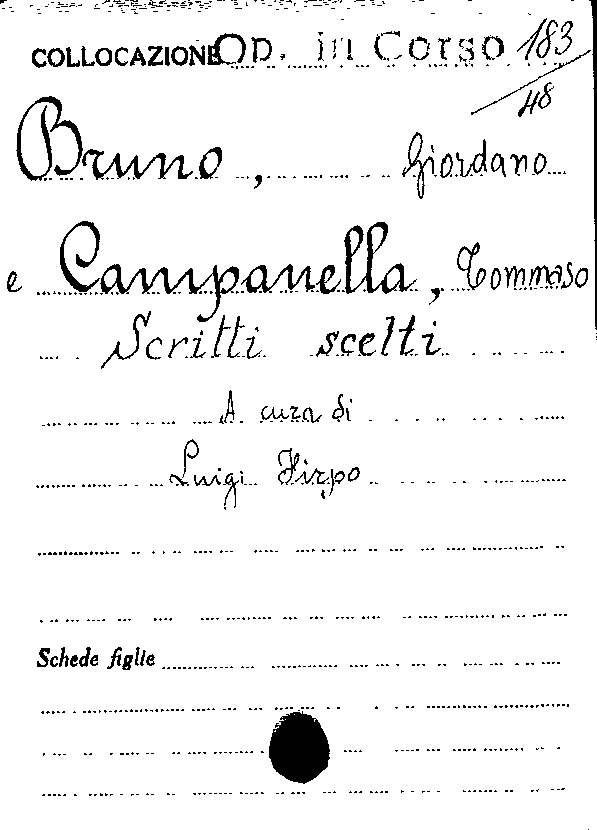 COLLOCAZIONE Op. in Corso 183/48
Bruno, Giordano
e Campanella, Tommaso
Scritti scelti
A cura di
Luigi Firpo
Schede figlie